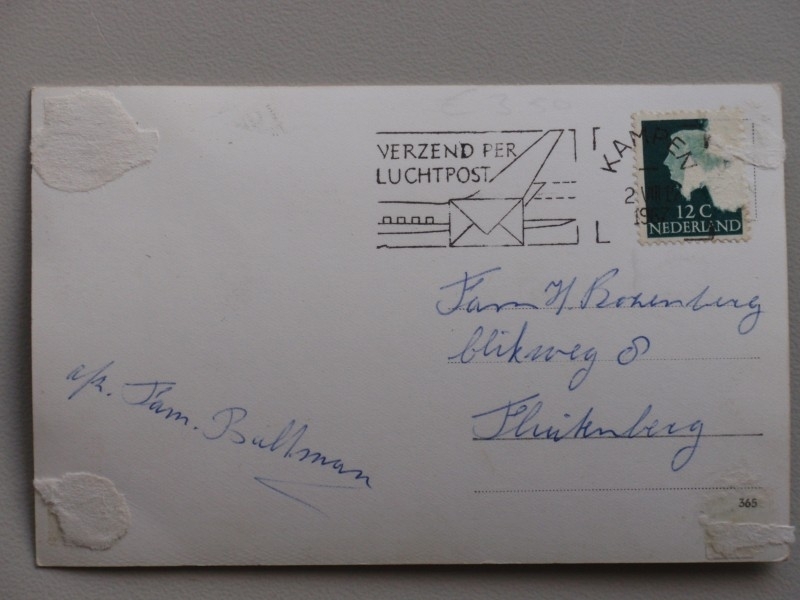 VERZEND PER
LUCHTPOST
KAMPEN
12 C
NEDERLAND
Fam H Rozenberg
blikweg 8
Fluitenberg
afz. Fam. Bultman
365